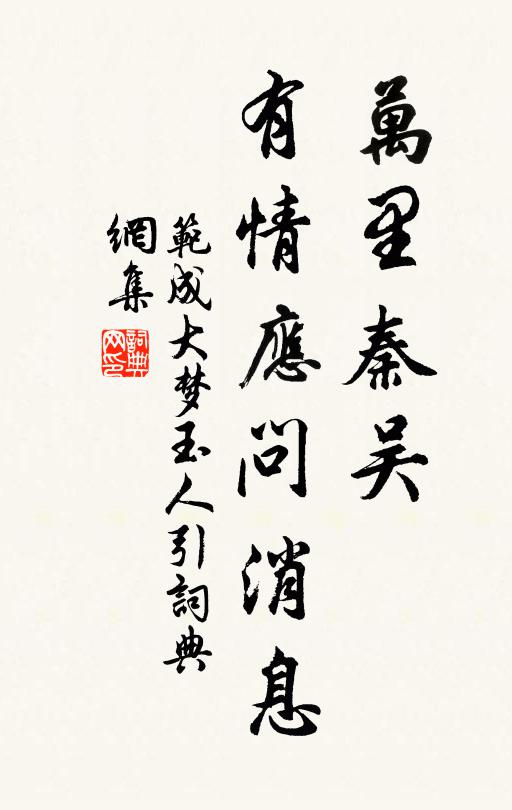 萬里秦吴
有情應問消息
範成大梦玉人引詞典
網集
詞典
网印